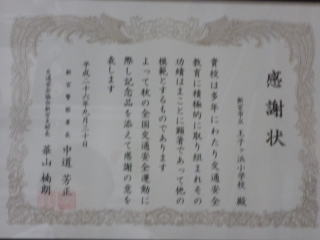 感謝状
新宮市立 王子ヶ浜小学校 殿
貴校は多年にわたり交通安全
教育に積極的に取り組まれその
功績はまことに顕著であって他の
模範とするものであります
よって秋の全国交通安全運動に
際し記念品を添えて感謝の意を
表します
平成二十六年九月三十日
新宮警察署長 中道 芳正